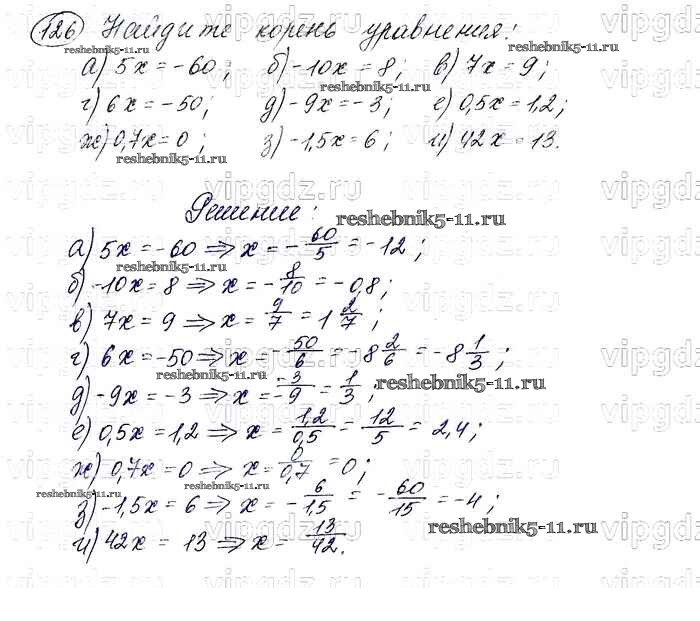 126 Найдите корень уравнения:
а) 5x = -60; б) -10x = 8; в) 7x = 9;
г) 6x = -50; д) -9x = -3; е) 0,5x = 1,2;
ж) 0,7x = 0; з) -1,5x = 6; и) 42x = 13.
Решение:
а) 5x = -60 => x = -60/5 = -12;
б) -10x = 8 => x = -8/10 = -0,8;
в) 7x = 9 => x = 9/7 = 1 2/7;
г) 6x = -50 => x = -50/6 = -8 2/6 = -8 1/3;
д) -9x = -3 => x = -3/-9 = 1/3;
е) 0,5x = 1,2 => x = 1,2/0,5 = 12/5 = 2,4;
ж) 0,7x = 0 => x = 0/0,7 = 0;
з) -1,5x = 6 => x = -6/1,5 = -60/15 = -4;
и) 42x = 13 => x = 13/42.
reshebnik5-11.ru
vipgdz.ru